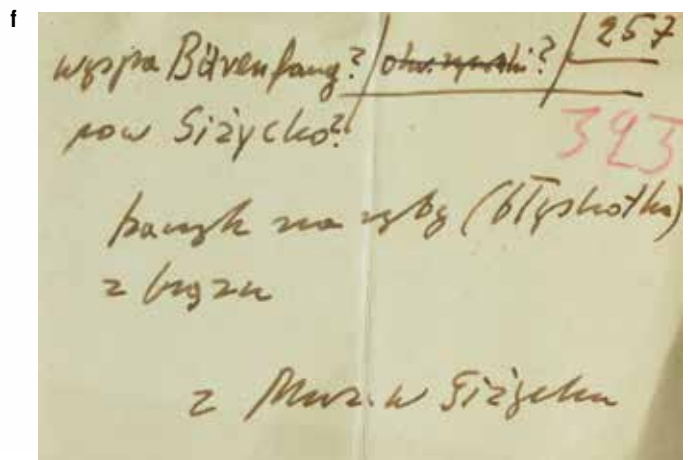 f
wyspa Bärenfang? / otw. rynski? / 257
pow Giżycko?
323
haczyk na ryby (błyskotka)
z brązu
z Muz. w Giżycku